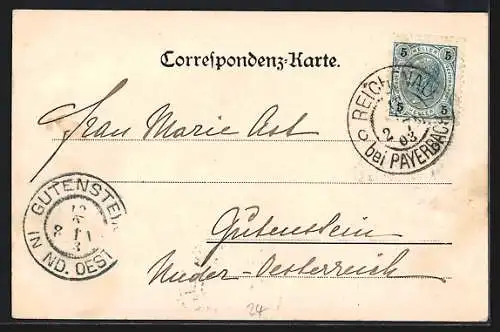 Correspondenz-Karte.
5 HELLER 5
5 5
REICHENAU
2 03
bei PAYERBACH
Frau Marie Ast
GUTENSTEIN
IN ND. OEST
Gutenstein
Nieder-Oesterreich
24